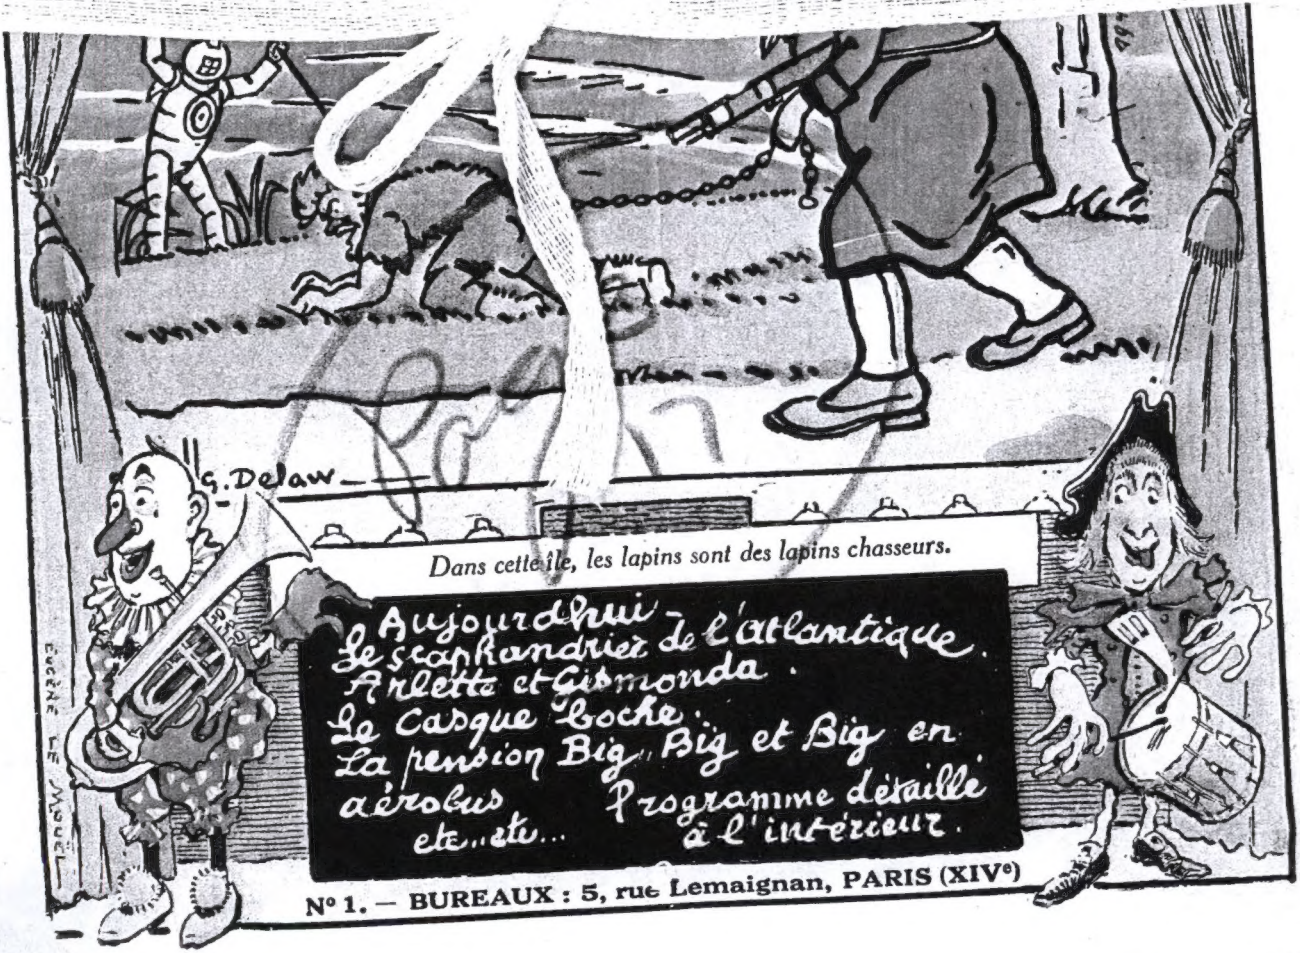 G. Delaw
Dans cette île, les lapins sont des lapins chasseurs.
Aujourdhui -
Le scaphandrier de l'atlantique.
Arlette et Gismonda.
Le casque boche.
La pension Big, Big et Big en
aérobus
etc..etc...
Programme détaillé
à l'intérieur.
EUGÈNE LE MOUËL
Nº 1. — BUREAUX : 5, rue Lemaignan, PARIS (XIVe)